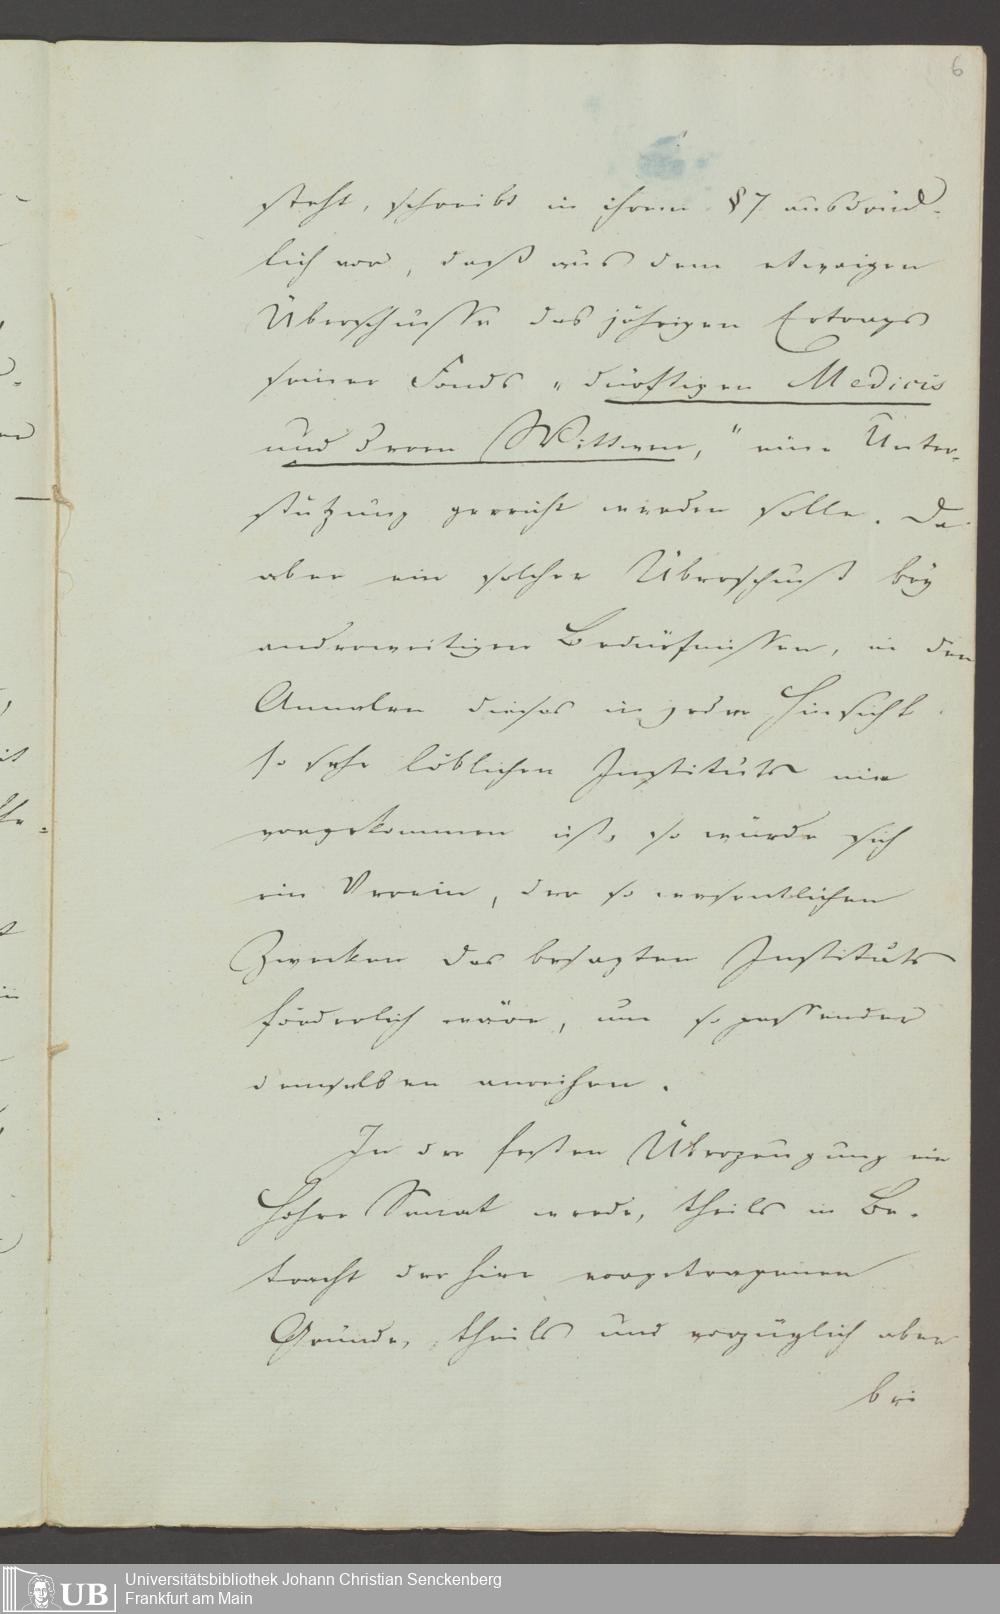 6
steht, schreibt in ihrem §7 ausdrück-
lich vor, daß aus dem etwaigen
Überschusse des jährigen Ertrags
seiner Fonds „dürftigen Medicis
und deren Wittwen," eine Unter-
stützung gereicht werden solle. Da
aber ein solcher Überschuß bey
anderweitigen Bedürfnissen, in den
Annalen dieses in jeder Hinsicht
so sehr löblichen Instituts nie
vorgekommen ist, so würde sich
ein Verein, der so wesentlichen
Zwecken des besagten Instituts
förderlich wäre, um so passender
demselben anreihen.
In der festen Überzeugung ein
Hoher Senat werde, theils in Be-
tracht der hier vorgetragenen
Gründe, theils und vorzüglich aber
bei
UB
Universitätsbibliothek Johann Christian Senckenberg
Frankfurt am Main